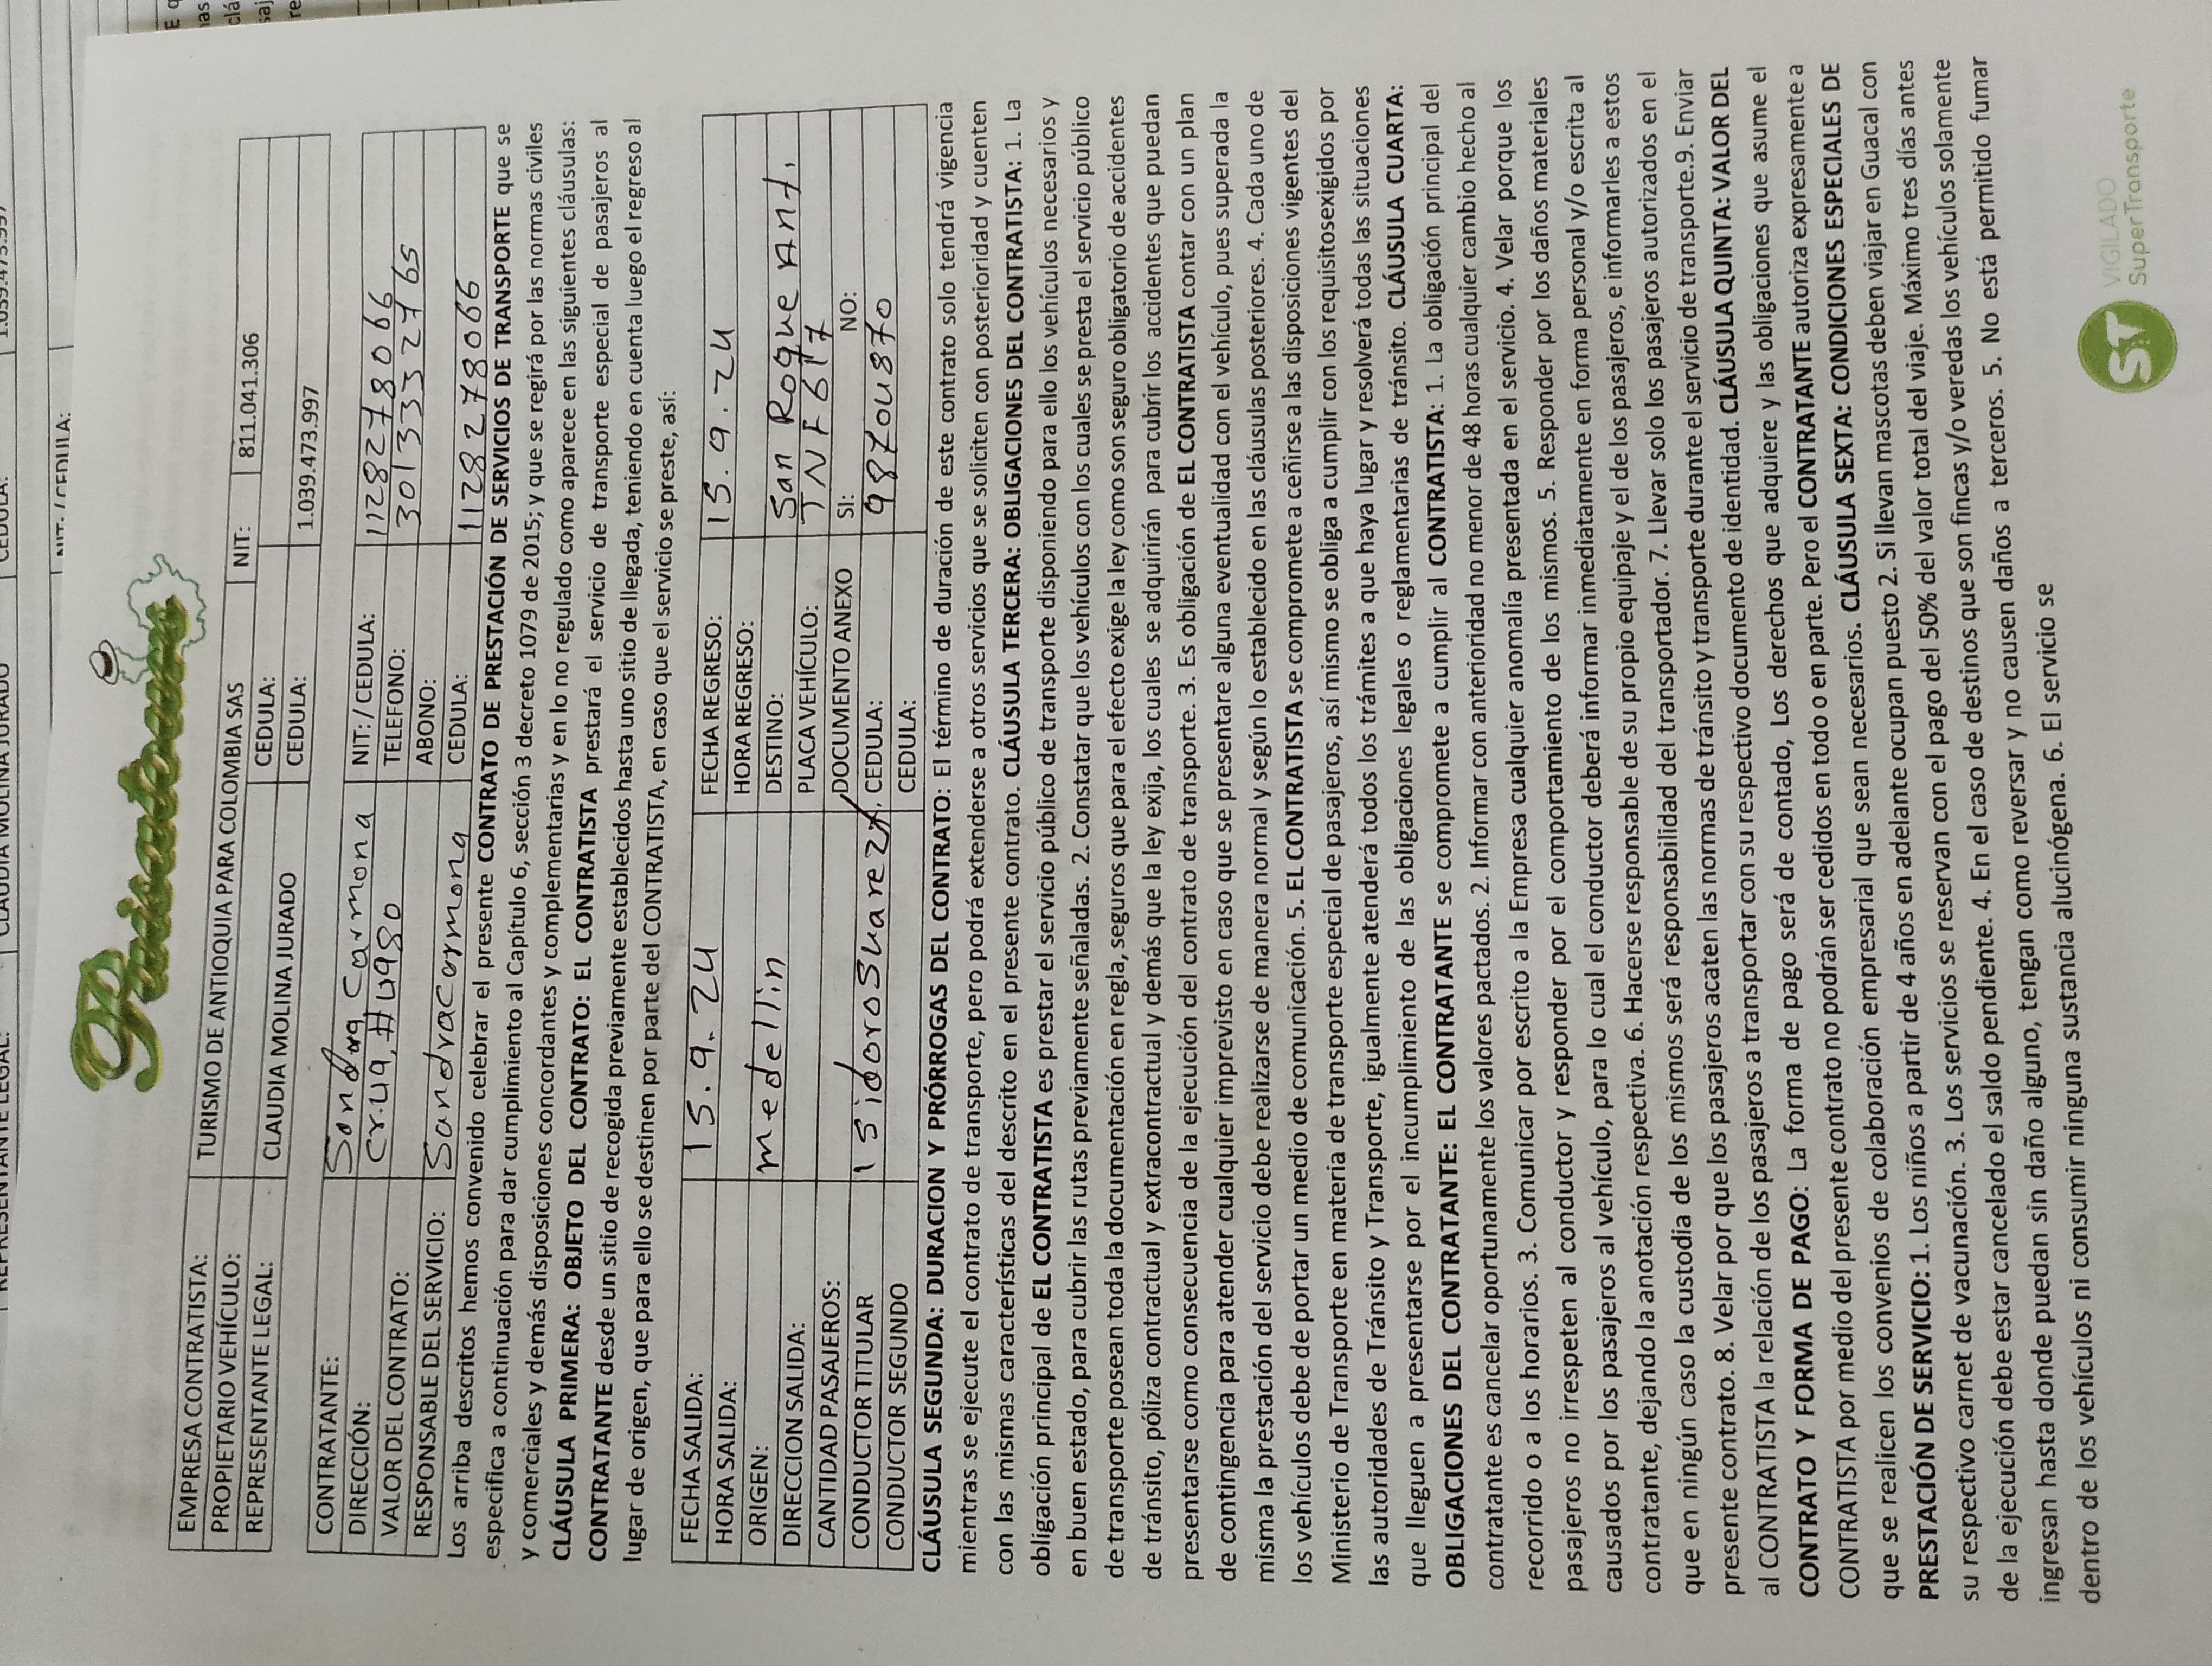 Paisatours
EMPRESA CONTRATISTA: TURISMO DE ANTIOQUIA PARA COLOMBIA SAS NIT: 811.041.306
PROPIETARIO VEHÍCULO: CEDULA:
REPRESENTANTE LEGAL: CLAUDIA MOLINA JURADO CEDULA: 1.039.473.997
CONTRATANTE: Sandra Carmona NIT:/CEDULA: 1128278066
DIRECCIÓN: Cr.ua,#4980 TELEFONO: 3013332765
VALOR DEL CONTRATO: ABONO:
RESPONSABLE DEL SERVICIO: Sandracarmona CEDULA: 1128278066
Los arriba descritos hemos convenido celebrar el presente CONTRATO DE PRESTACIÓN DE SERVICIOS DE TRANSPORTE que se
especifica a continuación para dar cumplimiento al Capítulo 6, sección 3 decreto 1079 de 2015; y que se regirá por las normas civiles
y comerciales y demás disposiciones concordantes y complementarias y en lo no regulado como aparece en las siguientes cláusulas:
CLÁUSULA PRIMERA: OBJETO DEL CONTRATO: EL CONTRATISTA prestará el servicio de transporte especial de pasajeros al
CONTRATANTE desde un sitio de recogida previamente establecidos hasta uno sitio de llegada, teniendo en cuenta luego el regreso al
lugar de origen, que para ello se destinen por parte del CONTRATISTA, en caso que el servicio se preste, así:
FECHA SALIDA: 15.9.24 FECHA REGRESO: 15.9.24
HORA SALIDA: HORA REGRESO:
ORIGEN: medellin DESTINO: San Roque Ant.
DIRECCION SALIDA: PLACA VEHÍCULO: TNF617
CANTIDAD PASAJEROS: DOCUMENTO ANEXO SI: NO:
CONDUCTOR TITULAR isidoro Suarez CEDULA: 98704870
CONDUCTOR SEGUNDO CEDULA:
CLÁUSULA SEGUNDA: DURACION Y PRÓRROGAS DEL CONTRATO: El término de duración de este contrato solo tendrá vigencia
mientras se ejecute el contrato de transporte, pero podrá extenderse a otros servicios que se soliciten con posterioridad y cuenten
con las mismas características del descrito en el presente contrato. CLÁUSULA TERCERA: OBLIGACIONES DEL CONTRATISTA: 1. La
obligación principal de EL CONTRATISTA es prestar el servicio público de transporte disponiendo para ello los vehículos necesarios y
en buen estado, para cubrir las rutas previamente señaladas. 2. Constatar que los vehículos con los cuales se presta el servicio público
de transporte posean toda la documentación en regla, seguros que para el efecto exige la ley como son seguro obligatorio de accidentes
de tránsito, póliza contractual y extracontractual y demás que la ley exija, los cuales se adquirirán para cubrir los accidentes que puedan
presentarse como consecuencia de la ejecución del contrato de transporte. 3. Es obligación de EL CONTRATISTA contar con un plan
de contingencia para atender cualquier imprevisto en caso que se presentare alguna eventualidad con el vehículo, pues superada la
misma la prestación del servicio debe realizarse de manera normal y según lo establecido en las cláusulas posteriores. 4. Cada uno de
los vehículos debe de portar un medio de comunicación. 5. EL CONTRATISTA se compromete a ceñirse a las disposiciones vigentes del
Ministerio de Transporte en materia de transporte especial de pasajeros, así mismo se obliga a cumplir con los requisitosexigidos por
las autoridades de Tránsito y Transporte, igualmente atenderá todos los trámites a que haya lugar y resolverá todas las situaciones
que lleguen a presentarse por el incumplimiento de las obligaciones legales o reglamentarias de tránsito. CLÁUSULA CUARTA:
OBLIGACIONES DEL CONTRATANTE: EL CONTRATANTE se compromete a cumplir al CONTRATISTA: 1. La obligación principal del
contratante es cancelar oportunamente los valores pactados. 2. Informar con anterioridad no menor de 48 horas cualquier cambio hecho al
recorrido o a los horarios. 3. Comunicar por escrito a la Empresa cualquier anomalía presentada en el servicio. 4. Velar porque los
pasajeros no irrespeten al conductor y responder por el comportamiento de los mismos. 5. Responder por los daños materiales
causados por los pasajeros al vehículo, para lo cual el conductor deberá informar inmediatamente en forma personal y/o escrita al
contratante, dejando la anotación respectiva. 6. Hacerse responsable de su propio equipaje y el de los pasajeros, e informarles a estos
que en ningún caso la custodia de los mismos será responsabilidad del transportador. 7. Llevar solo los pasajeros autorizados en el
presente contrato. 8. Velar por que los pasajeros acaten las normas de tránsito y transporte durante el servicio de transporte.9. Enviar
al CONTRATISTA la relación de los pasajeros a transportar con su respectivo documento de identidad. CLÁUSULA QUINTA: VALOR DEL
CONTRATO Y FORMA DE PAGO: La forma de pago será de contado, Los derechos que adquiere y las obligaciones que asume el
CONTRATISTA por medio del presente contrato no podrán ser cedidos en todo o en parte. Pero el CONTRATANTE autoriza expresamente a
que se realicen los convenios de colaboración empresarial que sean necesarios. CLÁUSULA SEXTA: CONDICIONES ESPECIALES DE
PRESTACIÓN DE SERVICIO: 1. Los niños a partir de 4 años en adelante ocupan puesto 2. Si llevan mascotas deben viajar en Guacal con
su respectivo carnet de vacunación. 3. Los servicios se reservan con el pago del 50% del valor total del viaje. Máximo tres días antes
de la ejecución debe estar cancelado el saldo pendiente. 4. En el caso de destinos que son fincas y/o veredas los vehículos solamente
ingresan hasta donde puedan sin daño alguno, tengan como reversar y no causen daños a terceros. 5. No está permitido fumar
dentro de los vehículos ni consumir ninguna sustancia alucinógena. 6. El servicio se
ST VIGILADO
SuperTransporte